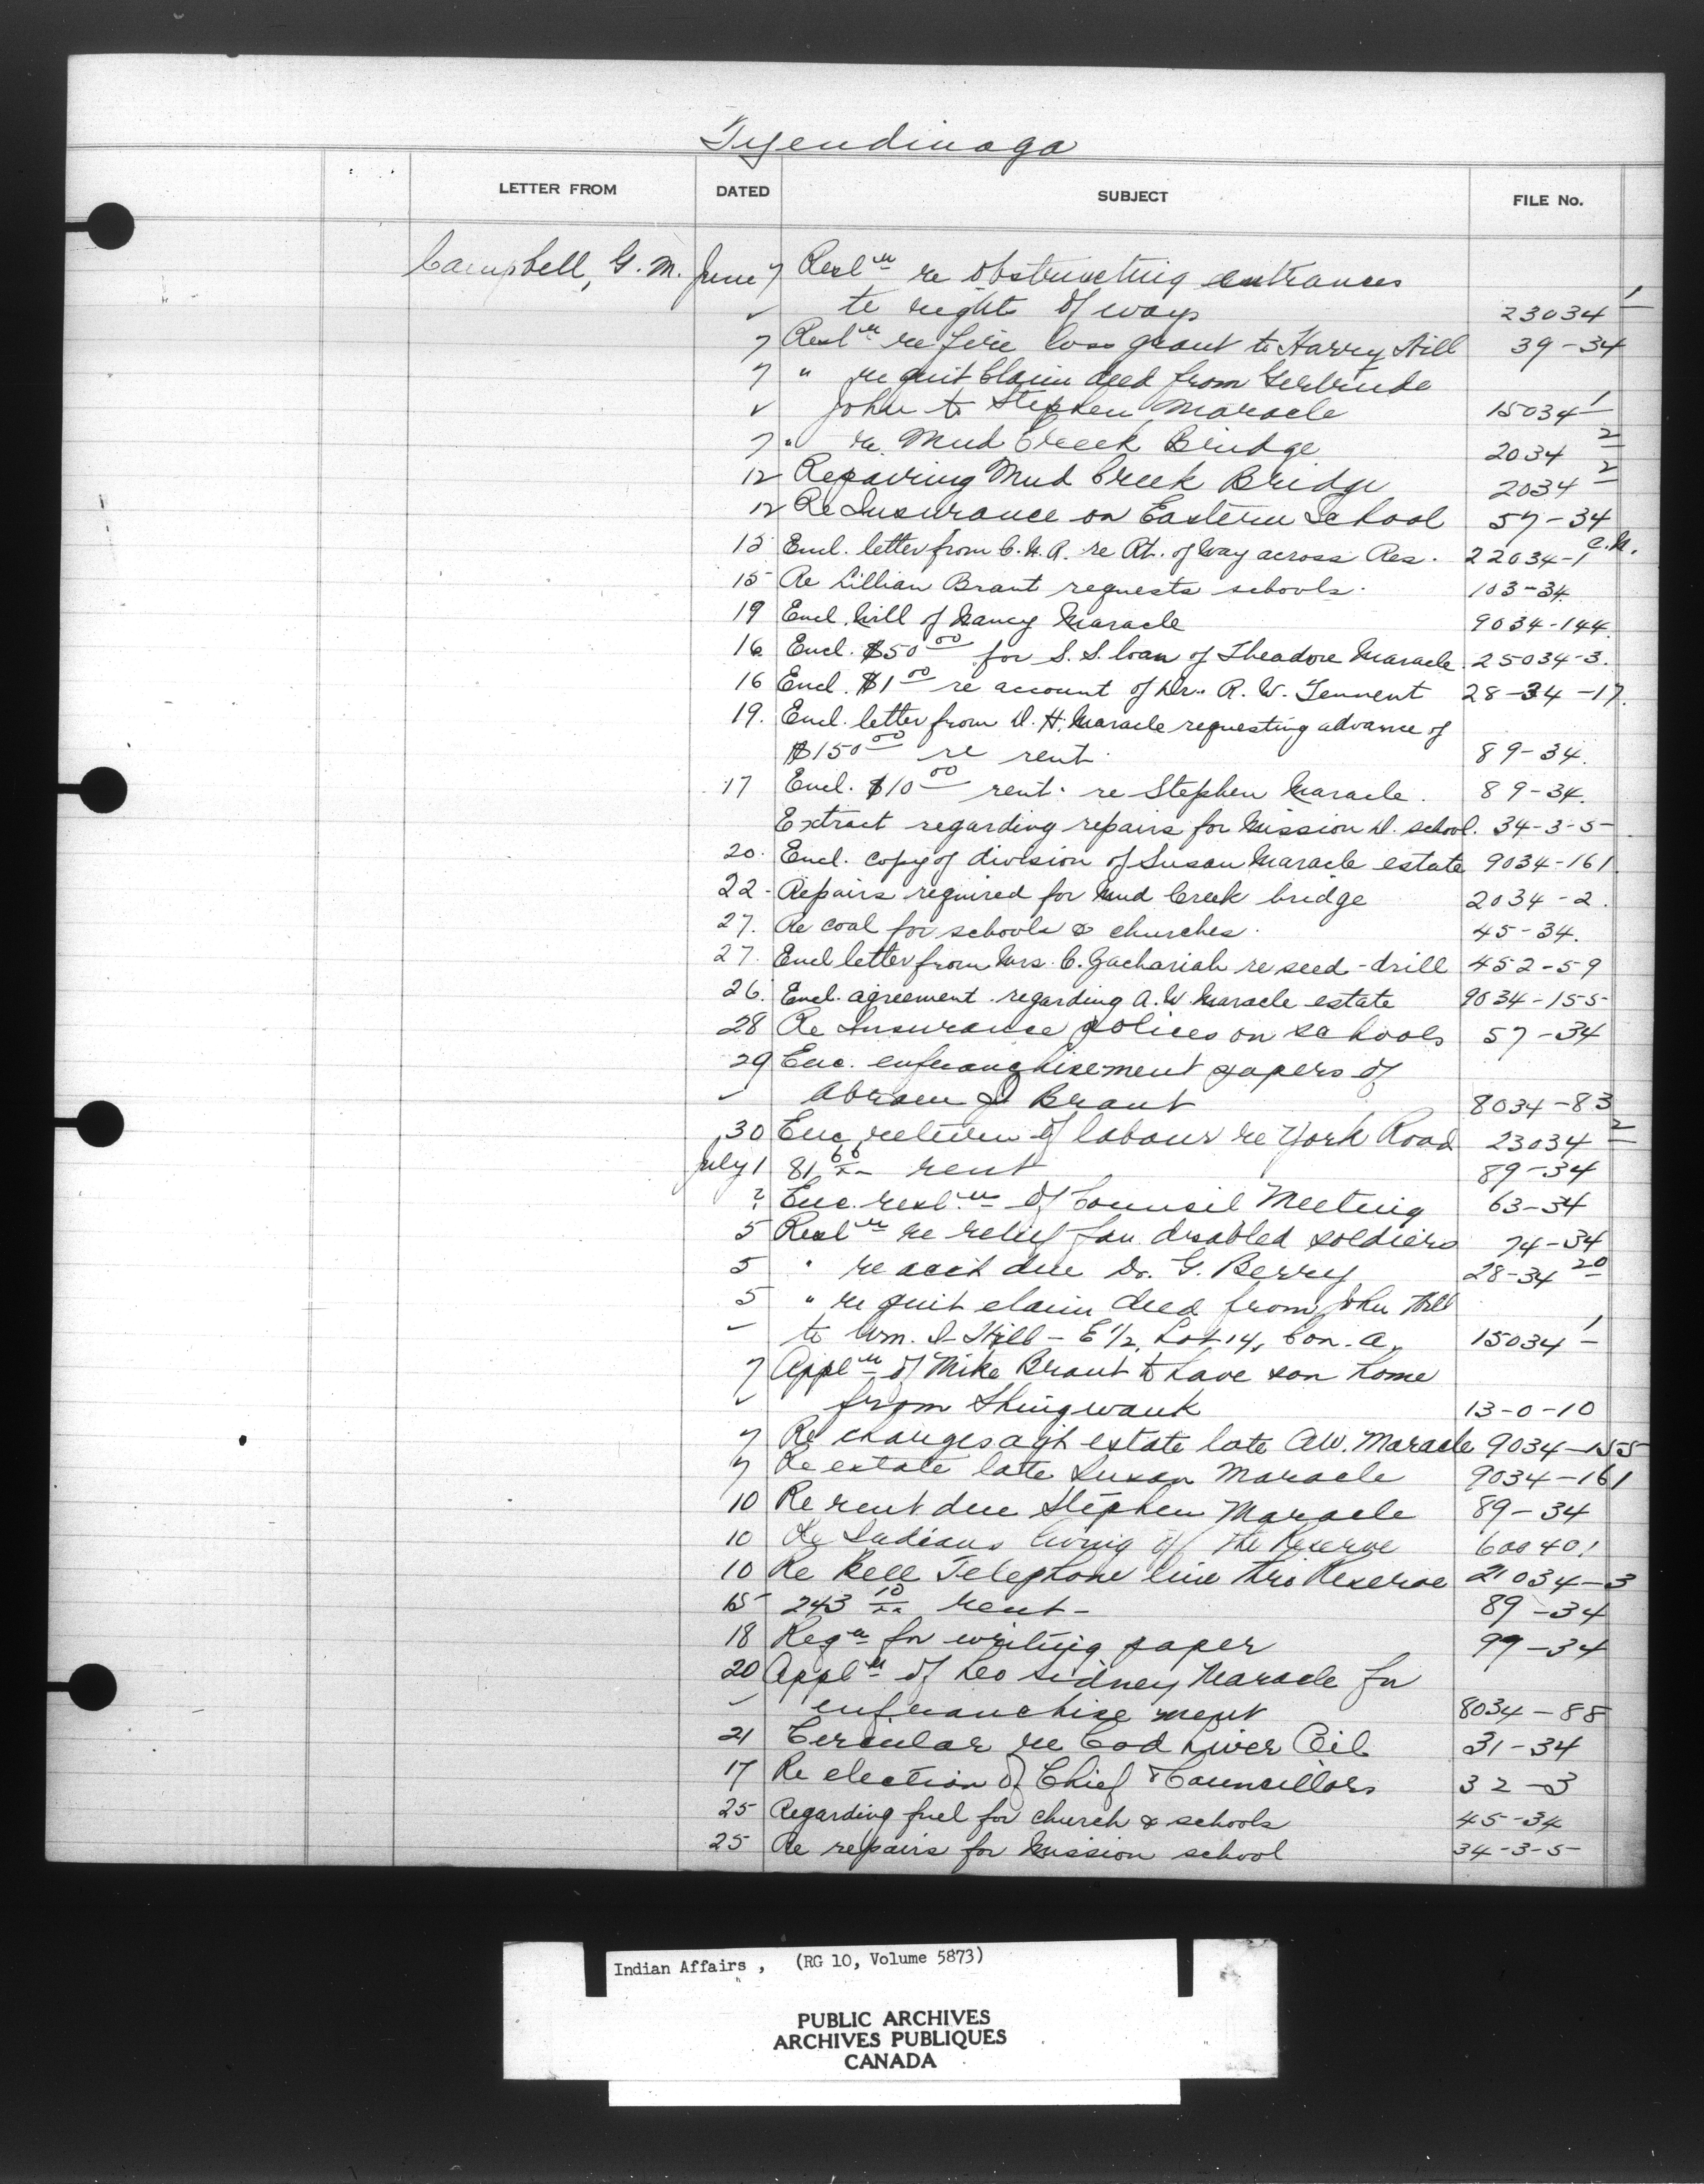 Tyendinaga
LETTER FROM DATED SUBJECT FILE No.
Campbell, G. M. June 7 Resl^n re obstructing entrances
✓ to right of ways 23034 1
7 Resl^n re fire loss grant to Harry Hill 39-34
7 " re quit Claim deed from Gertrude
✓ John to Stephen Maracle 15034 1
7 " re Mud Creek Bridge 2034 2
12 Repairing Mud Creek Bridge 2034 2
12 Re Insurance on Eastern School 57-34
15 Encl. letter from C.N.R. re Rt. of Way across Res. 22034-1 C.N.
15 Re Lillian Brant requests schools. 103-34.
19 Encl. Will of Nancy Maracle 9034-144.
16 Encl. $50 00 for S.S. loan of Theadore Maracle. 25034-3.
16 Encl. $1 00 re account of Dr. R. W. Tennent 28-34-17.
19. Encl. letter from D. H. Maracle requesting advance of
$150 00 re rent. 89-34.
17 Encl. $10 00 rent. re Stephen Maracle. 89-34.
Extract regarding repairs for Mission D. school. 34-3-5
20. Encl. copy of division of Susan Maracle estate 9034-161.
22- Repairs required for Mud Creek bridge 2034-2.
27. Re coal for schools & churches. 45-34.
27. Encl letter from Mrs. C. Zachariah re seed-drill 452-59
26. Encl. agreement regarding A. W. Maracle estate 9034-155
28 Re Insurance polices on schools 57-34
29 Enc. enfranchisement papers of
✓ Abram J Brant 8034-83
30 Enc return of labour re York Road 23034 2
July 1 81 66/xx rent 89-34
? Enc. resl^n of Council Meeting 63-34
5 Resl^n re relief for disabled soldiers 74-34
5 " re acct due Dr. G. Berry 28-34 20
5 " re quit claim deed from John Hill
✓ to Wm. I Hill - E 1/2, Lot 14, Con. A. 15034 1
7 Appl^n of Mike Brant to have son home
✓ from Shingwauk 13-0-10
7 Re changes agst estate late A.W. Maracle 9034-155
7 Re estate late Susan Maracle 9034-161
10 Re rent due Stephen Maracle 89-34
10 Re Indians living off the Reserve 600401
10 Re Bell Telephone line thro Reserve 21034-3
15 243 10/xx rent- 89-34
18 Reqn for writing paper 99-34
20 Appl^n of Leo Sidney Maracle for
✓ enfranchisement 8034-88
21 Circular re Cod Liver Oil 31-34
17 Re election of Chief & Councillors 32-3
25 Regarding fuel for church & schools 45-34
25 Re repairs for Mission school 34-3-5
Indian Affairs, (RG 10, Volume 5873)
PUBLIC ARCHIVES
ARCHIVES PUBLIQUES
CANADA